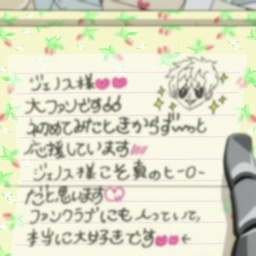 ジェノス様
大ファンです
初めてみたときからずーっと
応援しています
ジェノス様こそ真のヒーロー
だと思います
ファンクラブにも入っていて、
本当に大好きです